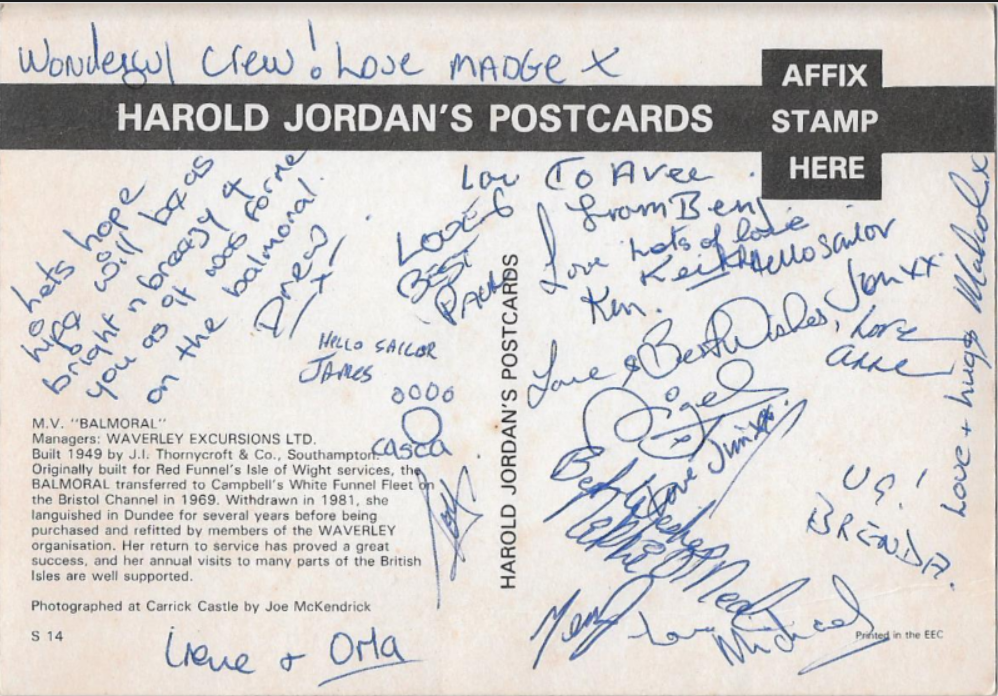 Wonderful Crew! Love MADGE X
AFFIX
STAMP
HERE
HAROLD JORDAN'S POSTCARDS
Lets hope
will be as
bright n breezy 4
you as it was for me
on the balmoral.
Drew
X
Love To
from Ben
LOVE &
BEST
Love Lots of love
Keith Hello sailor
Ken.
Jon xx
Love + hugs Malcolm x
HELLO SAILOR
JAMES
Love & Best Wishes,
Nigel
Love
Anne
Love Jim xx
Best Wishes
Michael
BRENDA.
HAROLD JORDAN'S POSTCARDS
M.V. "BALMORAL"
Managers: WAVERLEY EXCURSIONS LTD.
Built 1949 by J.I. Thornycroft & Co., Southampton.
Originally built for Red Funnel's Isle of Wight services, the
BALMORAL transferred to Campbell's White Funnel Fleet on
the Bristol Channel in 1969. Withdrawn in 1981, she
languished in Dundee for several years before being
purchased and refitted by members of the WAVERLEY
organisation. Her return to service has proved a great
success, and her annual visits to many parts of the British
Isles are well supported.
Photographed at Carrick Castle by Joe McKendrick
S 14
Irene + Orla
Printed in the EEC